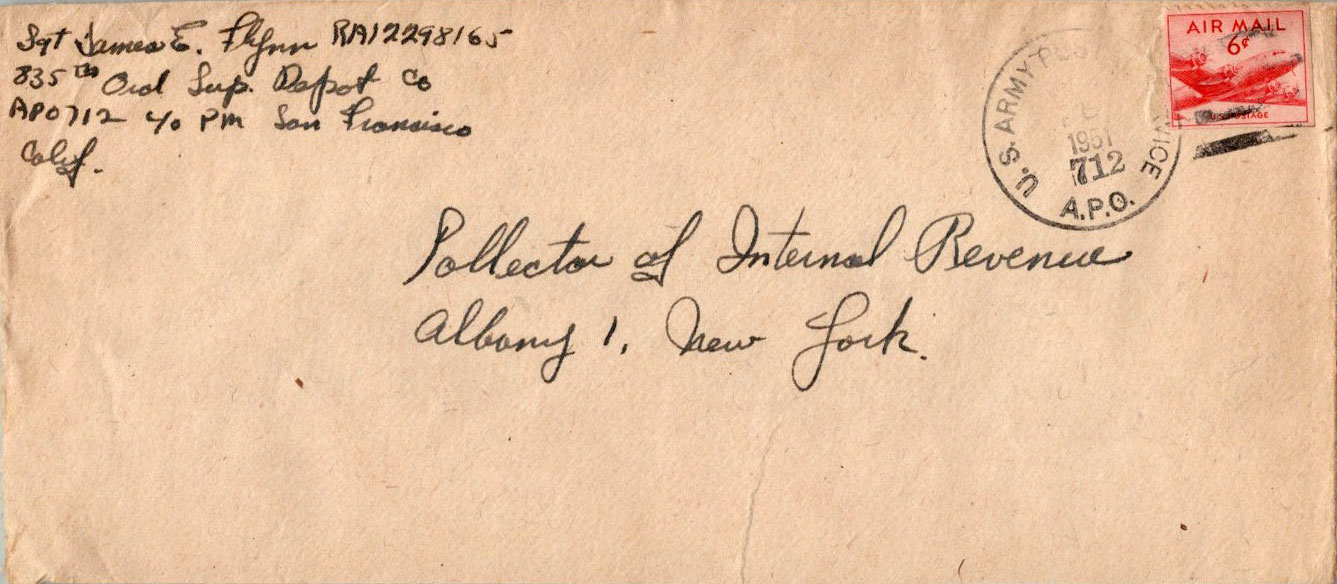 Sgt James E. Flynn RA12298165
835th Ord Sup. Depot Co
APO 712 c/o PM San Francisco
Calif.
AIR MAIL
6¢
U.S. POSTAGE
U.S. ARMY VICE
1951
712
A.P.O.
Collector of Internal Revenue
Albany 1, New York.